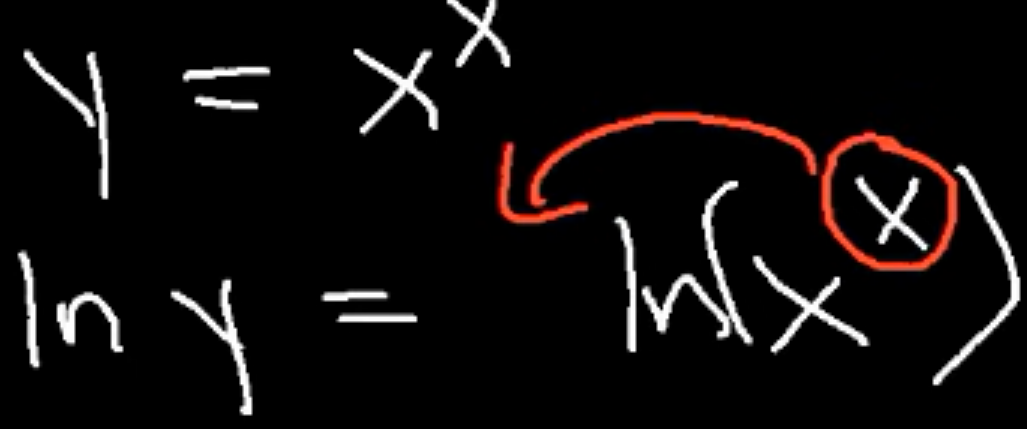 y = x^x
ln y = ln(x^x)